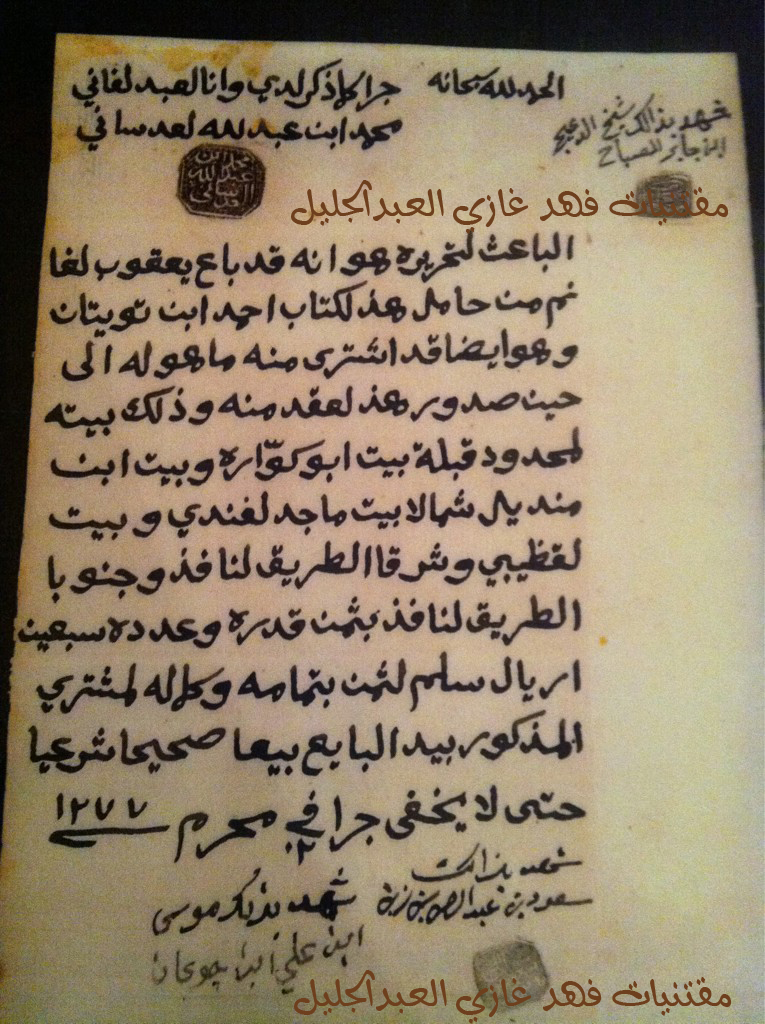 الحمد لله سبحانه
جرا كلما ذكر لدي وانا لعبد لفاني
محمد ابن عبد لله لعدساني
محمد بن عبد الله العدساني
شهد بذالك شيخ الدعيج
ابن جابر الصباح
مقتنيات فهد غازي العبدالجليل
الباعث لتحريره هو انه قد باع يعقوب لغا
نم من حامل هذ لكتاب احمد ابن تويتان
وهو ايضا قد اشترى منه ما هو له الى
حين صدور هذ لعقد منه وذلك بيته
لمحدود قبلة بيت ابو كوّاره وبيت ابن
منديل شمالا بيت ماجد لفندي وبيت
لقظيبي وشرقا الطريق لنافذ وجنوبا
الطريق لنافذ بثمن قدره وعدده سبعين
اريال سلم لثمن بتمامه وكماله لمشتري
المذكور بيد البايع بيعا صحيحا شرعيا
حتى لا يخفى جرا في ٢ محرم ١٢٧٧
شهد بذالك
سعود بن عبد
شهد بذلك موسى
ابن علي ابن
مقتنيات فهد غازي العبدالجليل